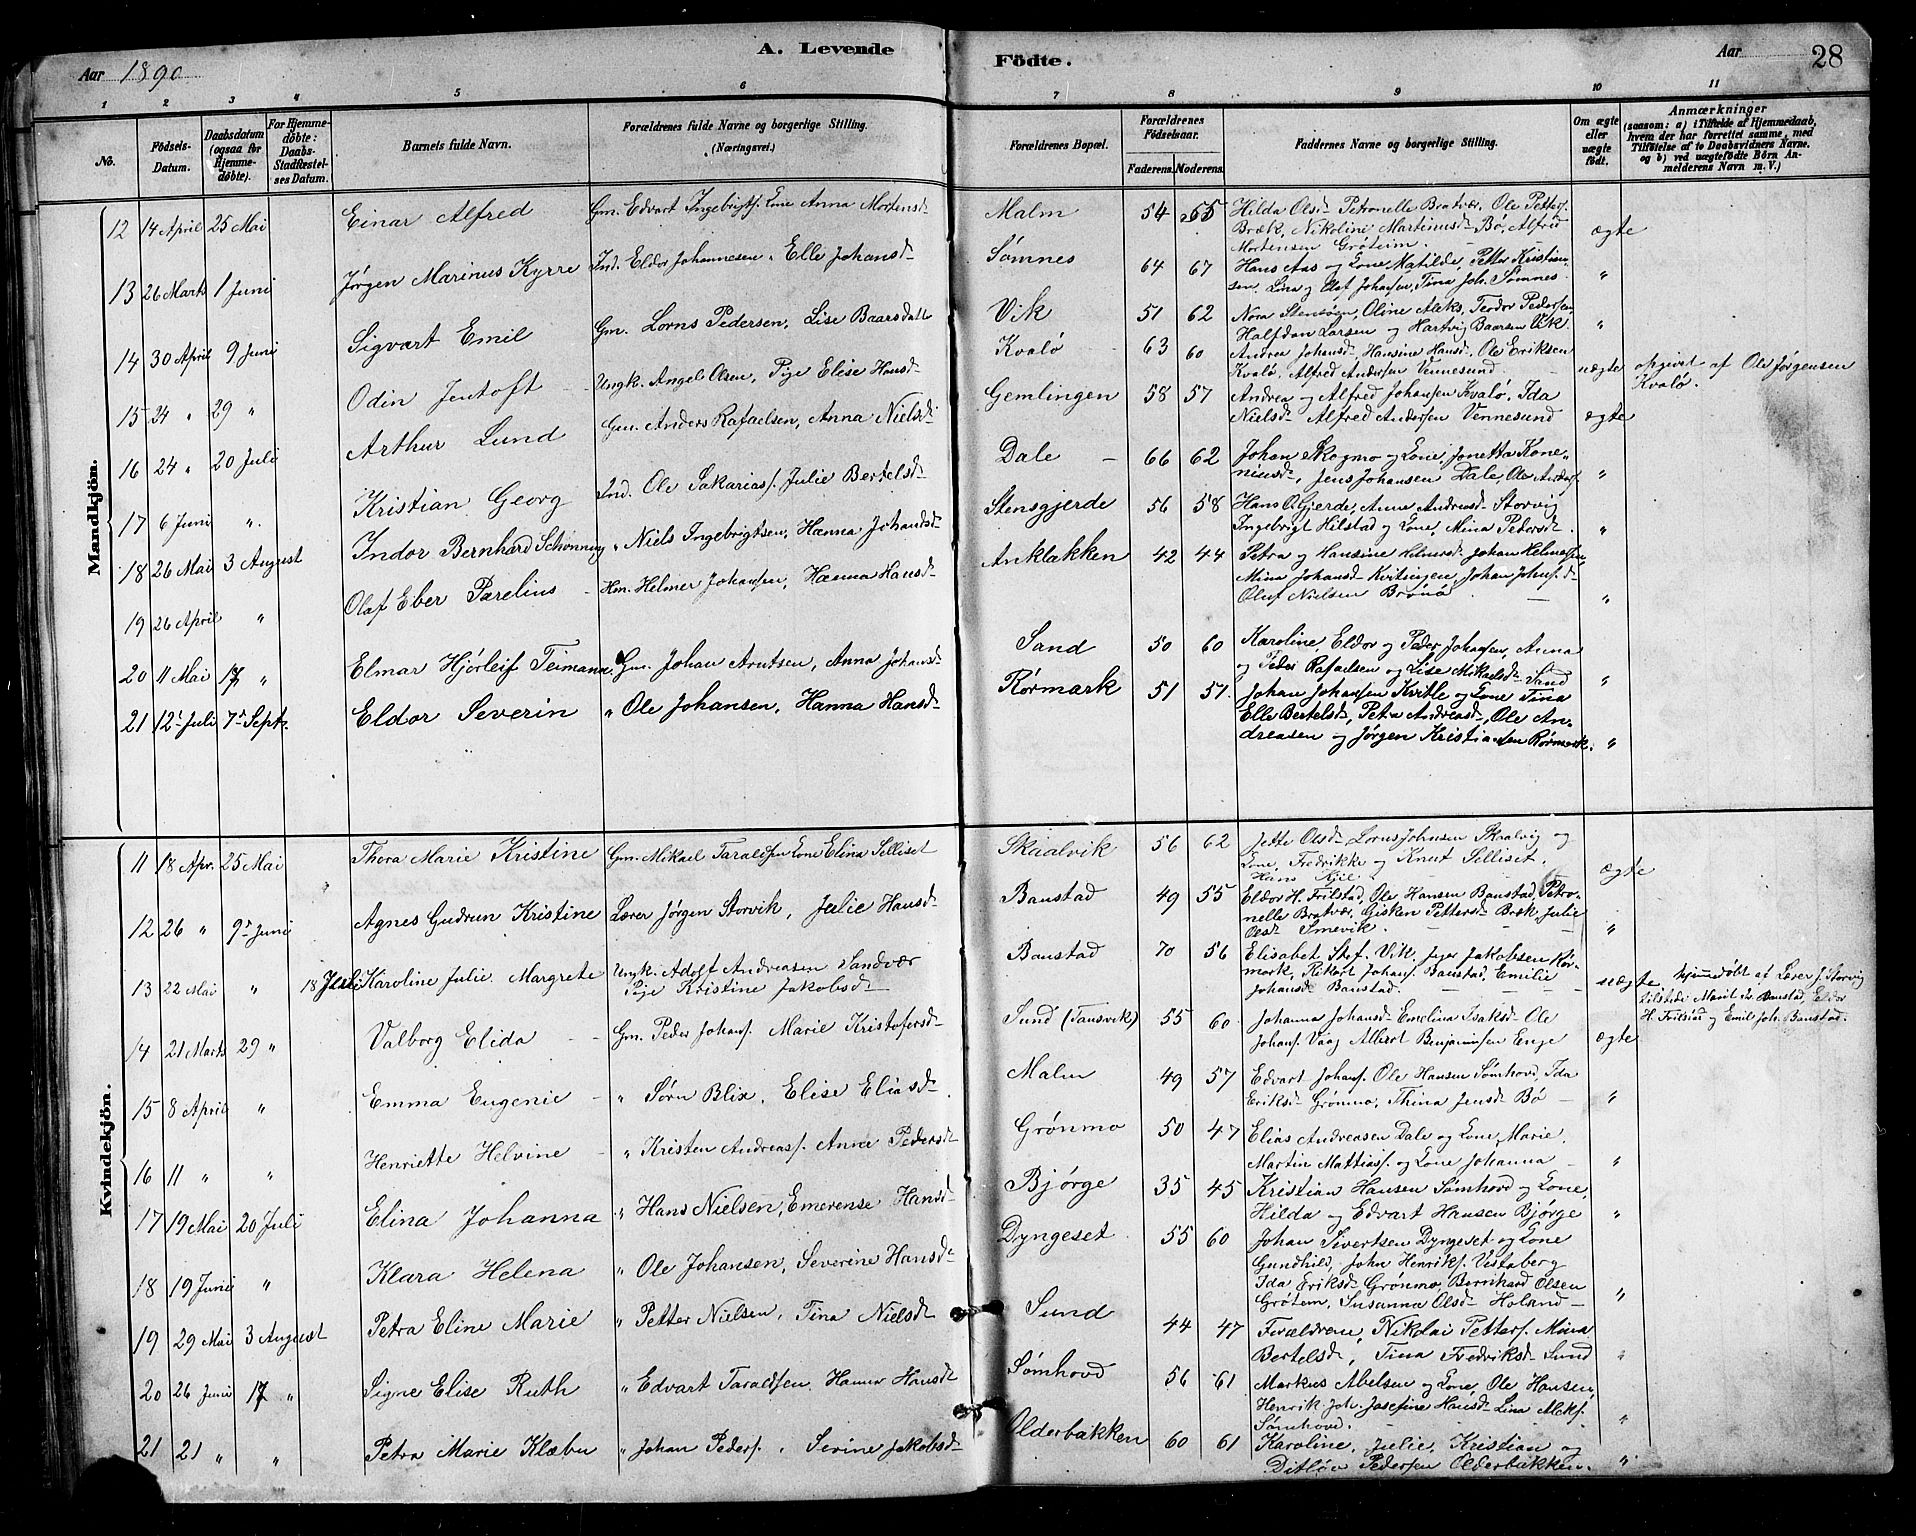 A. Levende Fødte.
Aar 1890
Aar 28
1 2 3 4 5 6 7 8 9 10 11
No.
Fødsels-Datum.
Daabsdatum (ogsaa for Hjemme-døbte).
For Hjemme-døbte: Daabs-Stadfæstel-ses Datum.
Barnets fulde Navn.
Forældrenes fulde Navne og borgerlige Stilling. (Næringsvei.)
Forældrenes Bopæl.
Forældrenes Fødselsaar. Faderens. Moderens.
Faddernes Navne og borgerlige Stilling.
Om ægte eller uægte født.
Anmærkninger (saasom: a) i Tilfælde af Hjemmedaab, hvem der har forrettet samme, med Tilføielse af to Daabsvidners Navne. og b) ved uægtefødte Børn An-melderens Navn m. V.)
Mandkjön.
12 14 April 25 Mai Einar Alfred Gm. Edvart Ingebrigts. Kone Anna Mortensd Malm 54 55 Hilda Olsd Petronelle Bratvær, Ole Petters.
Bræk, Nikoline Martinusd Bö, Alfred
Mortensen Grøteim. ægte
13 26 Marts 1 Juni Jørgen Marinus Kyrre Ind. Eldor Johannesen, Elle Johansd Sømnes 64 67 Hans Aas og Kone Matilde, Petter Kristian-
sen, Lina og Olaf Johansen, Tina Joh. Sømnes. "
14 30 April 9 Juni Sigvart Emil Gm. Lorns Pedersen, Lise Baarsdatt Vik 51 62 Nora Stensøen, Oline Aleks, Teodor Pedersen
Halfdan Larsen og Hartvig Baarsen Vik. "
15 24 " 29 " Odin Jentoft Ungk. Angel Olsen, Pige Elise Hansd Kvalø 63 60 Andrea Johansd Hansine Hansd, Ole Eriksen
Kvalø, Alfred Andersen Vennesund uægte opgivet af Ole Jørgensen
Kvalø.
16 24 " 20 Juli Arthur Lund Gm. Anders Rafaelsen, Anna Nielsd Gemlingen 58 57 Andrea og Alfred Johansen Kvalø, Ida
Nielsd Alfred Andersen Vennesund ægte
17 6 Juni " Kristian Georg Ind. Ole Sakarias. Julie Bertelsd Dale 66 62 Johan Skogmo og Kone, Jonetta Kone-
niusd, Jens Johansen Dale, Ole Anders. "
18 26 Mai 3 August Indor Bernhard Schønning " Niels Ingebrigtsen, Hanna Johansd Stensgjerde 56 58 Hans O. Gjerde, Anne Andreasd Storvig
Ingebrigt Hilstad og Kone, Mina Pedersd "
19 26 April " Olaf Eber Parelius Hm. Helmer Johansen, Hanna Hansd Anklakken 42 44 Petra og Hansine Helmersd Johan Helmersen,
Mina Johansd Kvitingen, Johan Johns. d
Oluf Nielsen Brønø "
20 11 Mai 17 " Elmar Hjørleif Teimann Gm. Johan Arntsen, Anna Johansd Sand 50 60 Karoline, Eldor og Peder Johansen, Anna
og Peder Rafaelsen og Lise Mikaelsd Sand "
21 12 Juli 7 Septr. Eldor Severin " Ole Johansen, Hanna Hansd Rørmark 51 51. Johan Johansen Kvitle og Kone Tina
Elle Bertelsd, Petra Andreasd, Ole An-
dreasen og Jørgen Kristiansen Rørmark. "
Kvindekjön.
11 18 Apr. 25 Mai Thora Marie Kristine Gm. Mikael Taraldsen Kone Elina Selliset Skaalvik 56 62 Jette Olsd Lorns Johnsen Skalvig og
Kone, Fredrikke og Knut Selliset.
Hans ægte
12 26 " 9 Juni Agnes Gudrun Kristine Lærer Jørgen Storvik, Julie Hansd Banstad 49 55 Eldor H. Frilstad, Ole Hansen Banstad, Petro-
nelle Bratvær, Gisken Pettersd Bræk, Julie
Olsd Smevik. "
13 22 Mai " 18 Juli Karoline Julie Margrete Ungk. Adolf Andreasen Sandvær
Pige Kristine Jakobsd Banstad 70 56 Elisabet Stef. Vik, Jøger Jakobsen Rør-
mark, Rikoft Johans. Banstad, Emilie
Johansd Banstad. uægte, hjemmedøbt af Lærer J. Storvig
tilstede Marit Banstad, Eldor
H. Frilstad og Emil Joh. Banstad.
14 21 Marts 29 " Valborg Elida Gm. Peder Johans. Marie Kristofersd Sund (Tansvik) 55 60 Johanna Johansd Emelina Isaksd Ole
Johans. Vaag Albert Benjaminsen Enge ægte
15 8 April " Emma Eugenie " Sørn Blix, Elise Eliasd Malm 49 57 Edvart Johans. Ole Hansen Sømhovd, Ida
Eriksd Grønmo, Thina Jensd Bö "
16 11 " " Henriette Helvine " Kristen Andreass. Anne Pedersd Grønmo 50 47 Elias Andreasen Dale og Kone, Marie,
Martin Mattias. og Kone Johanna "
17 19 Mai 20 Juli Elina Johanna " Hans Nielsen, Emerense Hansd Bjørge 35 45 Kristian Hansen Sømhovd og Kone,
Hilda og Edvart Hansen Bjørge "
18 19 Juni " Klara Helena " Ole Johansen, Severine Hansd Dyngeset 55 60 Johan Sivertsen Dyngeset og Kone
Gundhild, John Henriks. Vistaberg
Ida Eriksd Grønmo, Bernhard Olsen
Grøtem, Susanna Olsd Holand "
19 29 Mai 3 August Petra Eline Marie " Petter Nielsen, Tina Nielsd Sund 44 47 Forældrene, Nikolai Petters. Mina
Bertelsd, Tina Fredriksd Sund "
20 26 Juni 17 " Signe Elise Ruth " Edvart Taraldsen, Hanna Hansd Sømhovd 56 61 Markus Abelsen og Kone, Ole Hansen,
Henrik Joh. Josefine Hansd Lina Aleks.
Sømhovd. "
21 21 " " Petra Marie Klæbu " Johan Peders. , Sevine Jakobsd Olderbakken 60 61 Karoline, Julie, Kristian og
Ditlöv Pedersen Olderbakken. "